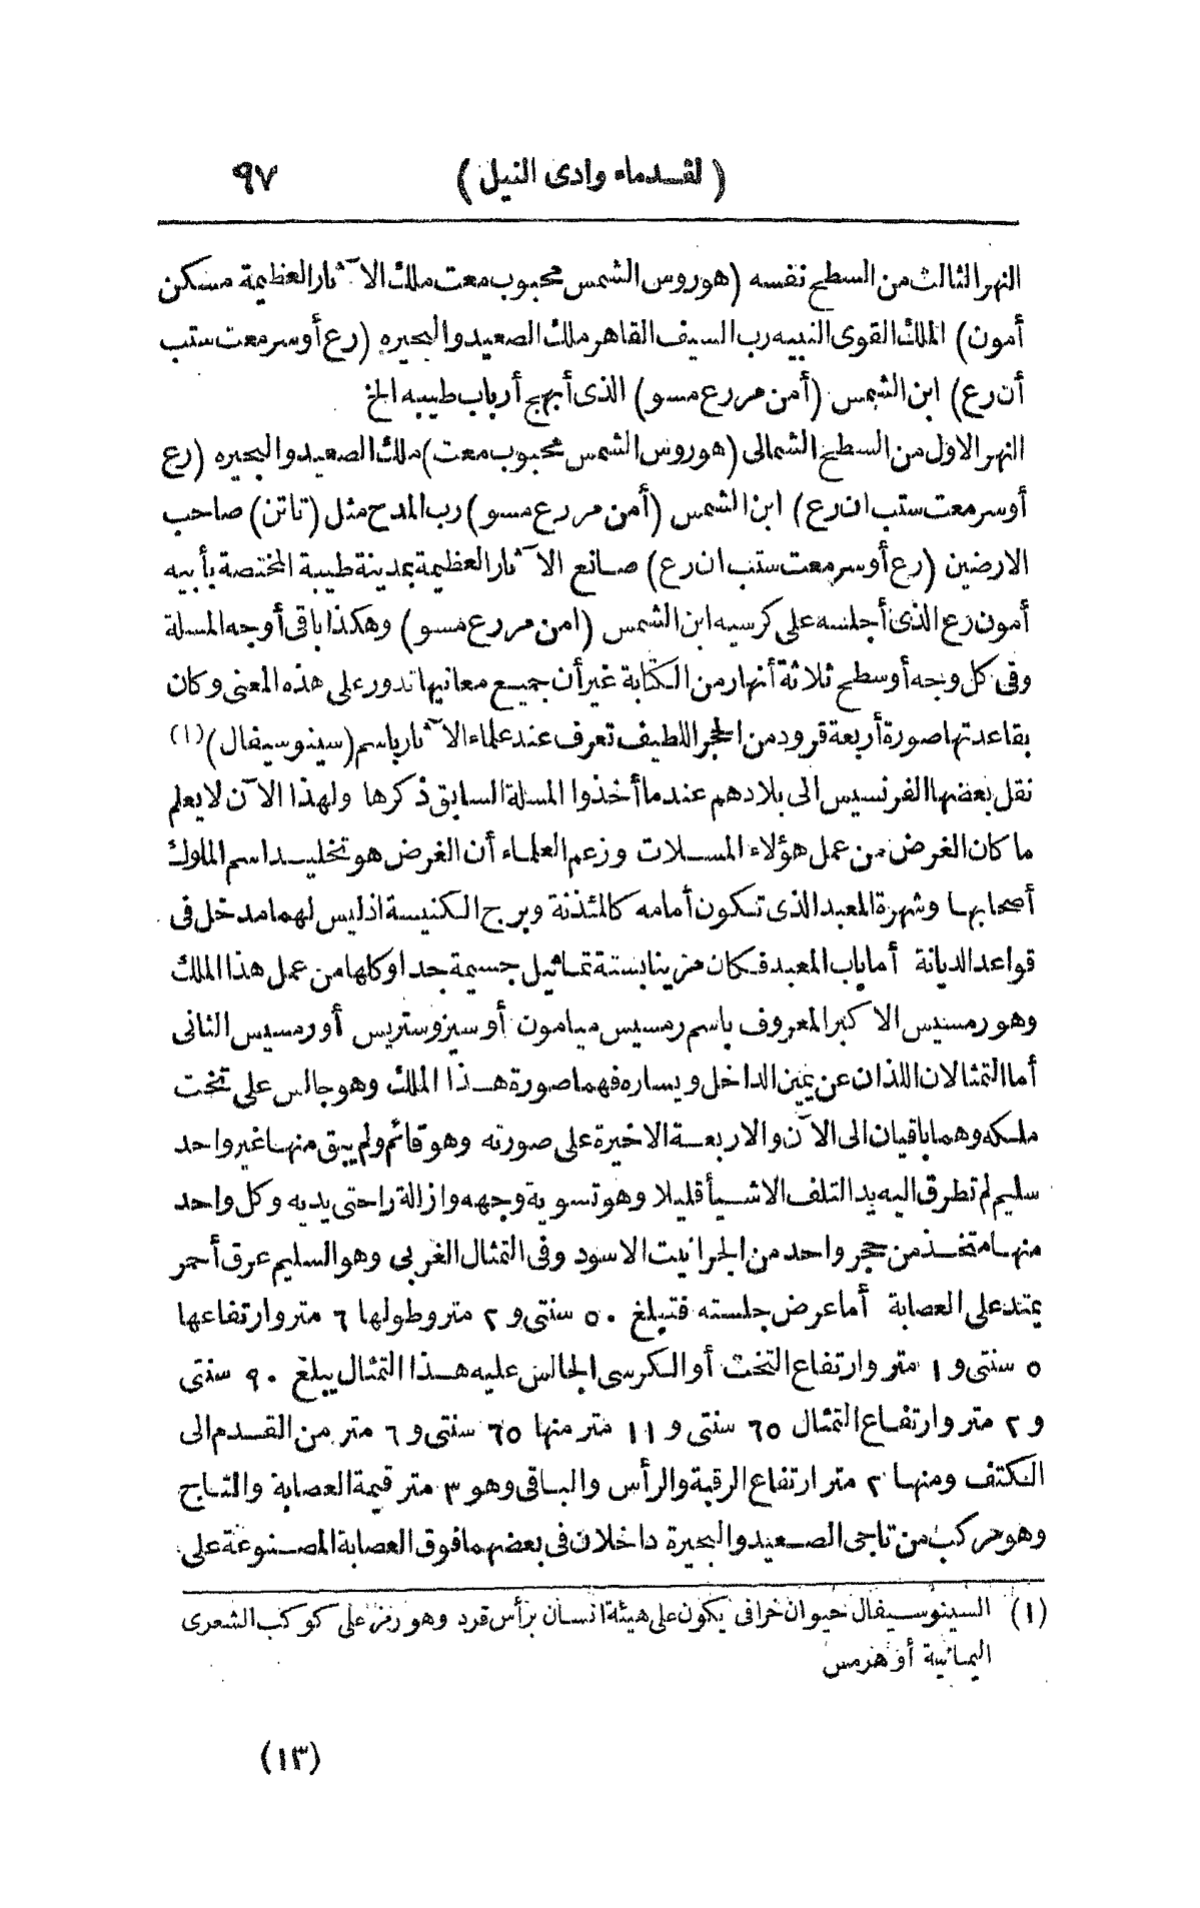 (لقدماء وادى النيل) ٩٧
النهر الثالث من السطح نفسه (هوروس الشمس محبوب معت ملك الآثار العظيمة مسكن
أمون) الملك القوى النبيه رب السيف القاهر ملك الصعيد والبحيره (رع أوسر معت ستب
أن رع) ابن الشمس (أمن مر رع مسو) الذى أبهج أرباب طيبه الخ
النهر الاول من السطح الشمالى (هوروس الشمس محبوب معت) ملك الصعيد والبحيره (رع
أوسر معت ستب ان رع) ابن الشمس (أمن مر رع مسو) رب المدح مثل (تاتن) صاحب
الارضين (رع أوسر معت ستب ان رع) صانع الآثار العظيمة بمدينة طيبة المختصة بأبيه
أمون رع الذى أجلسه على كرسيه ابن الشمس (امن مر رع مسو) وهكذا باقى أوجه المسلة
وفى كل وجه أو سطح ثلاثة أنهار من الكتابة غير أن جميع معانيها تدور على هذه المعنى وكان
بقاعدتها صورة أربعة قرود من الحجر اللطيف تعرف عند علماء الآثار باسم (سينوسيفال) (١)
نقل بعضها الفرنسيس الى بلادهم عندما أخذوا المسلة السابق ذكرها ولهذا الآن لا يعلم
ما كان الغرض من عمل هؤلاء المسلات وزعم العلماء أن الغرض هو تخليد اسم الملوك
أصحابها وشهرة المعبد الذى تكون أمامه كالمئذنة وبرج الكنيسة اذ ليس لهما مدخل فى
قواعد الديانة أما باب المعبد فكان مزينا بستة تماثيل جسيمة جدا وكلها من عمل هذا الملك
وهو رمسيس الاكبر المعروف باسم رمسيس ميامون أو سيزوستريس أو رمسيس الثانى
أما التمثالان اللذان عن يمين الداخل ويساره فهما صورة هذا الملك وهو جالس على تخت
ملكه وهما باقيان الى الآن والاربعة الاخيرة على صورته وهو قائم ولم يبق منها غير واحد
سليم لم تطرق اليه يد التلف الا شيأ قليلا وهو تسوية وجهه وازالة راحتى يديه وكل واحد
منها متخذ من حجر واحد من الجرانيت الاسود وفى التمثال الغربى وهو السليم عرق أحمر
يمتد على العصابة أما عرض جلسته فتبلغ ٥٠ سنتى و ٢ متر وطولها ٦ متر وارتفاعها
٥ سنتى و ١ متر وارتفاع التخت أو الكرسى الجالس عليه هذا التمثال يبلغ ٩٠ سنتى
و ٢ متر وارتفاع التمثال ٦٥ سنتى و ١١ متر منها ٦٥ سنتى و ٦ متر من القدم الى
الكتف ومنها ٢ متر ارتفاع الرقبة والرأس والباقى وهو ٣ متر قيمة العصابة والتاج
وهو مركب من تاجى الصعيد والبحيرة داخلان فى بعضهما فوق العصابة المصنوعة على
(١) السينوسيفال حيوان خرافى يكون على هيئة انسان برأس قرد وهو رمز على كوكب الشعرى
اليمانية أو هرمس
(١٣)